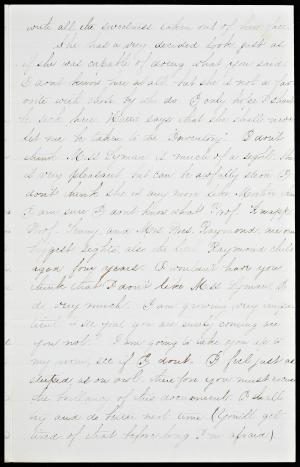 with all the sweetness taken out of her face.
She has a very decided look just as
if she was capable of doing what you said.
I dont know her at all but she is not a favorite
with those who do. I only hope I shant
be sick here. Nellie says that she shall never
let me be taken to the Inventory. I don't
think Miss Lyman is much of a sight. She
is very pleasant but can be awfully stern. I
don't think she is any more like
I am sure I don't know what Prof. Knapp
Prof. and Mrs Pres. Raymond, are our
biggest sights, also the little Raymond child
aged four years. I wouldn't have you
think that I don't like Miss Lyman. I
do very much. I am growing very impatient
to see you you are surely coming are
you not? I am going to take you up to
my room, see if I dont. I feel just as
sleepy as an owl, therefore you must excuse
the of this document. I shall
try and do better next time (You'll get
tired of that before long I'm afraid)